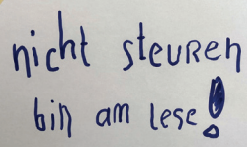 nicht steuren
bin am lese!